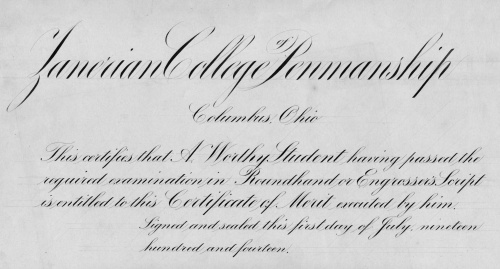 Zanerian College of Penmanship
Columbus, Ohio
This certifies that A. Worthy Student having passed the
required examination in Roundhand or Engrosser's Script
is entitled to this Certificate of Merit executed by him.
Signed and sealed this first day of July, nineteen
hundred and fourteen.